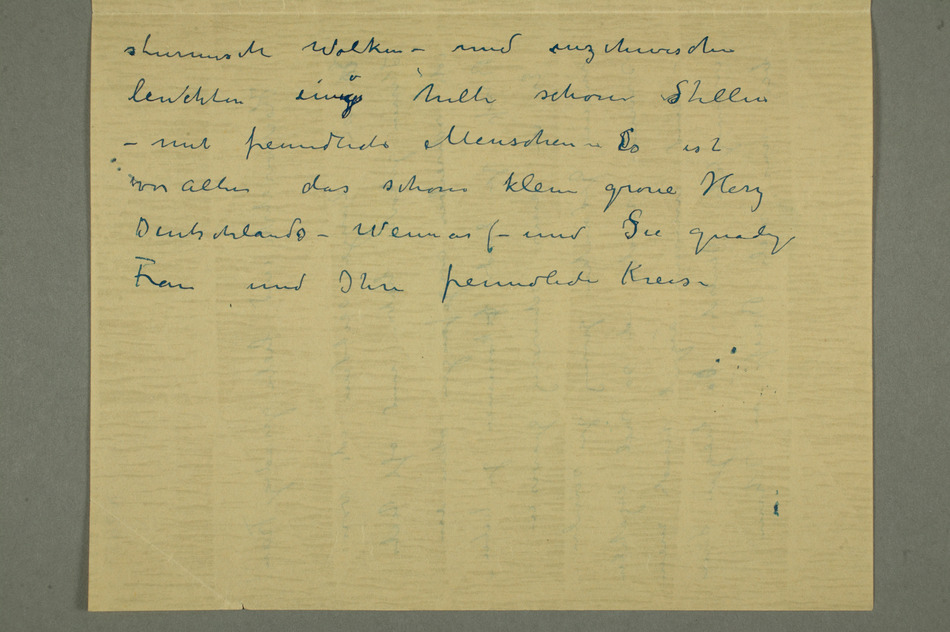 stürmische Wolken – und inzwischen
leuchten einige helle schöne Stellen
– mit freundliche Menschen – Es ist
vor allem das schöne kleine grosse Herz
Deutschlands – Weimar – und Sie gnädige
Frau und Ihre freundliche Kreise